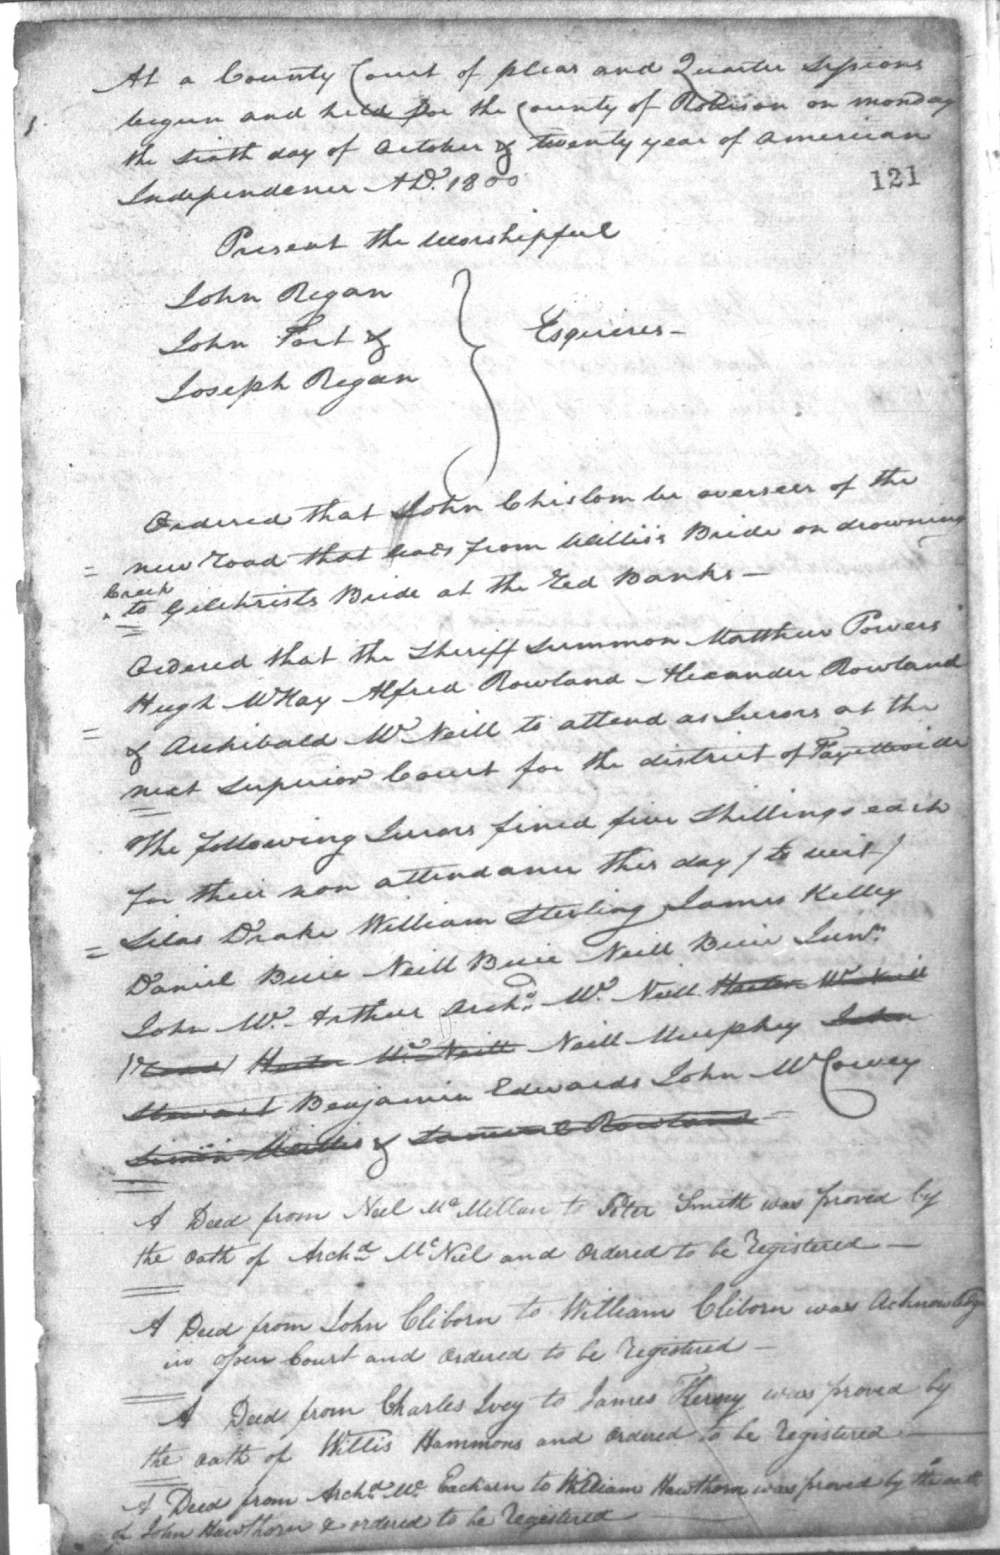 At a County Court of pleas and Quarter Sessions
begun and held for the County of Robison on monday
the sixth day of October & twenty year of American
Independence AD. 1800
121
Present the worshipful
John Regan
John Fort &
Joseph Regan
Esquires -
Ordered that John Chislom be overseer of the
new road that leads from Willis's Bride on drowning
Creek
to Gilchrists Bride at the Red Banks -
Ordered that the Sheriff summon Matthew Powers
Hugh McKay Alfred Rowland Alexander Rowland
& Archibald Mc Neill to attend as Jurors at the
next Superior Court for the district of
The following Jurors fined five Shillings each
for their non attendance this day (to wit)
Silas Drake William Sterling James Kelley
Daniel Buie Neill Buie Neill Buie Junr.
John Mc. Arthur Archd. Mc. Neill Hector McNeill
Hector Mc Neill Neill Murphey John
Stewart Benjamin Edwards John McCowey
Simon & Rowland -
A Deed from Neel McMillan to Peter Smith was proved by
the oath of Archd McNiel and ordered to be Registered -
A Deed from John Cliborn to William Cliborn was Acknowledged
in open Court and ordered to be Registered -
A Deed from Charles Ivey to James Kersey was proved by
the oath of Willis Hammons and ordered to be Registered -
A Deed from Archd Mc Eachern to William Hawthorn was proved by the oath
of John Hawthorn & ordered to be Registered